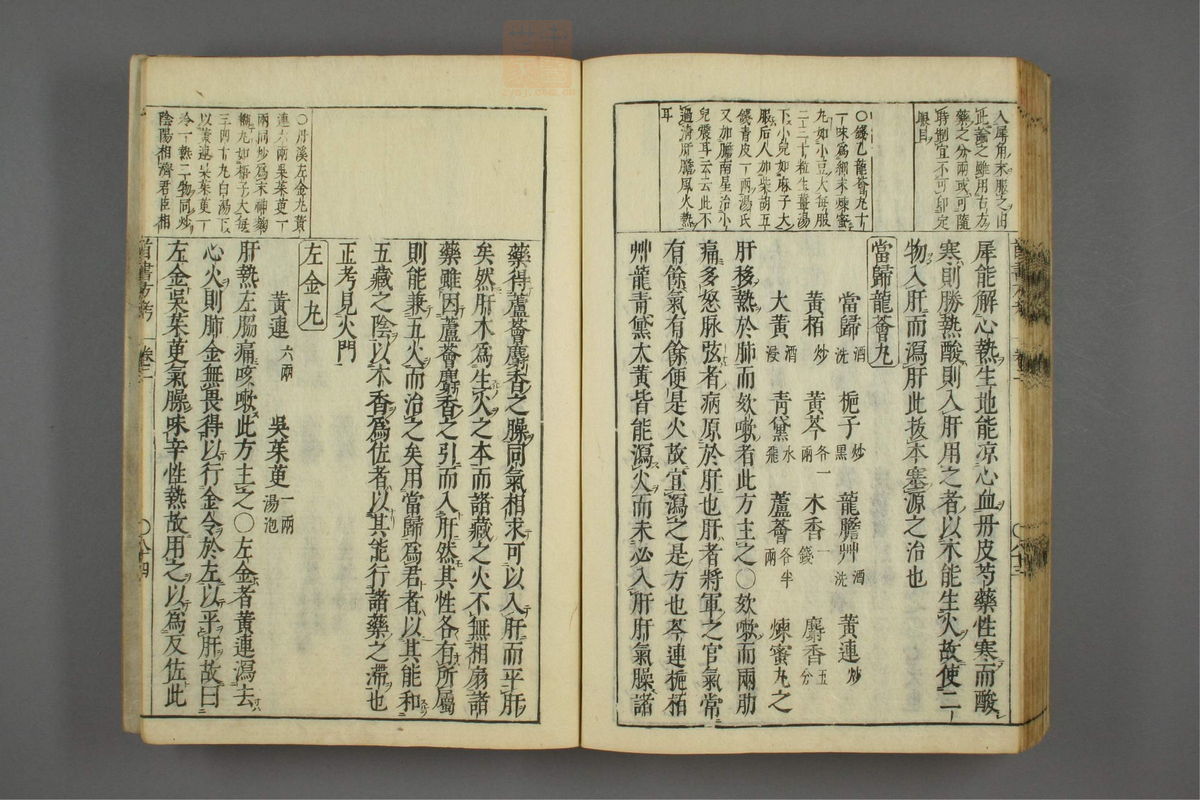 入犀角末服之旧
正論之雖用古方
藥之分兩或可隨
時制宜不可印定
眼目
○錢乙龍薈丸十
一味爲細末煉蜜
丸如小豆大每服
二三十粒生薑湯
下小兒如麻子大
服后人加柴胡五
錢青皮一兩湯氏
又加膽南星治小
兒驚耳云云此不
過清肝膽風火熱
耳
犀能解心熱生地能凉心血丹皮芍藥性寒而酸
寒則勝熱酸則入肝用之者以木能生火故使二
物入肝而瀉肝此拔本塞源之治也
當歸龍薈丸
當歸酒洗 梔子炒黑 龍膽艸酒洗 黃連炒
黃栢炒 黃芩各一兩 木香一錢 麝香五分
大黃酒浸 青黛水飛 蘆薈各半兩 煉蜜丸之
肝移熱於肺而欬嗽者此方主之○欬嗽而兩肋
痛多怒脉弦者病原於肝也肝者將軍之官氣常
有餘氣有餘便是火故宜瀉之是方也芩連梔栢
艸龍青黛大黃皆能瀉火而未必入肝肝氣臊諸
八十三
藥得蘆薈麝香之臊同氣相求可以入肝而平肝
矣然肝木爲生火之本而諸藏之火不無相扇諸
藥雖因蘆薈麝香之引而入肝然其性各有所屬
則能兼五火而治之矣用當歸爲君者以其能和
五藏之陰以木香爲佐者以其能行諸藥之滯也
正考見火門
左金丸
黃連六兩 吳茱萸一兩湯泡
肝熱左脇痛咳嗽此方主之○左金者黃連瀉去
心火則肺金無畏得以行金令於左以平肝故曰
左金吳茱萸氣臊味辛性熱故用之以爲反佐此
○丹溪左金丸黃
連六兩吳茱萸一
兩同炒爲末神麴
糊丸如梧子大每
三四十丸白湯下
以黃連吳茱萸一
冷一熱二物同炒
陰陽相濟君臣相
醫書方考 卷二 ○八十四